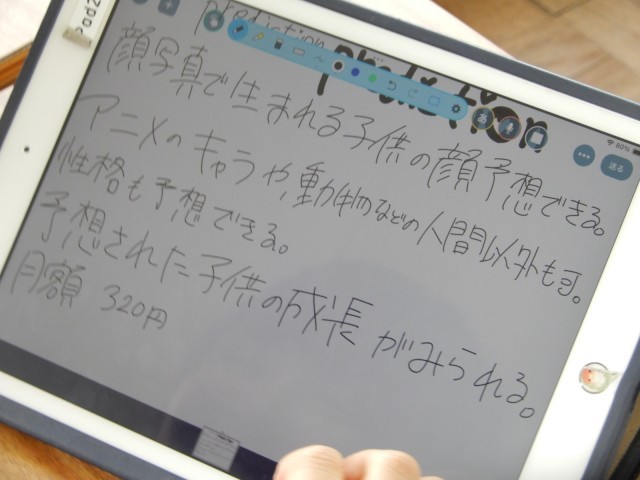 Pad2
80%
prediction
prediction
送る
顔写真で生まれる子供の顔予想できる。
アニメのキャラや,動物などの人間以外も可。
性格も予想できる。
予想された子供の成長がみられる。
月額 320円